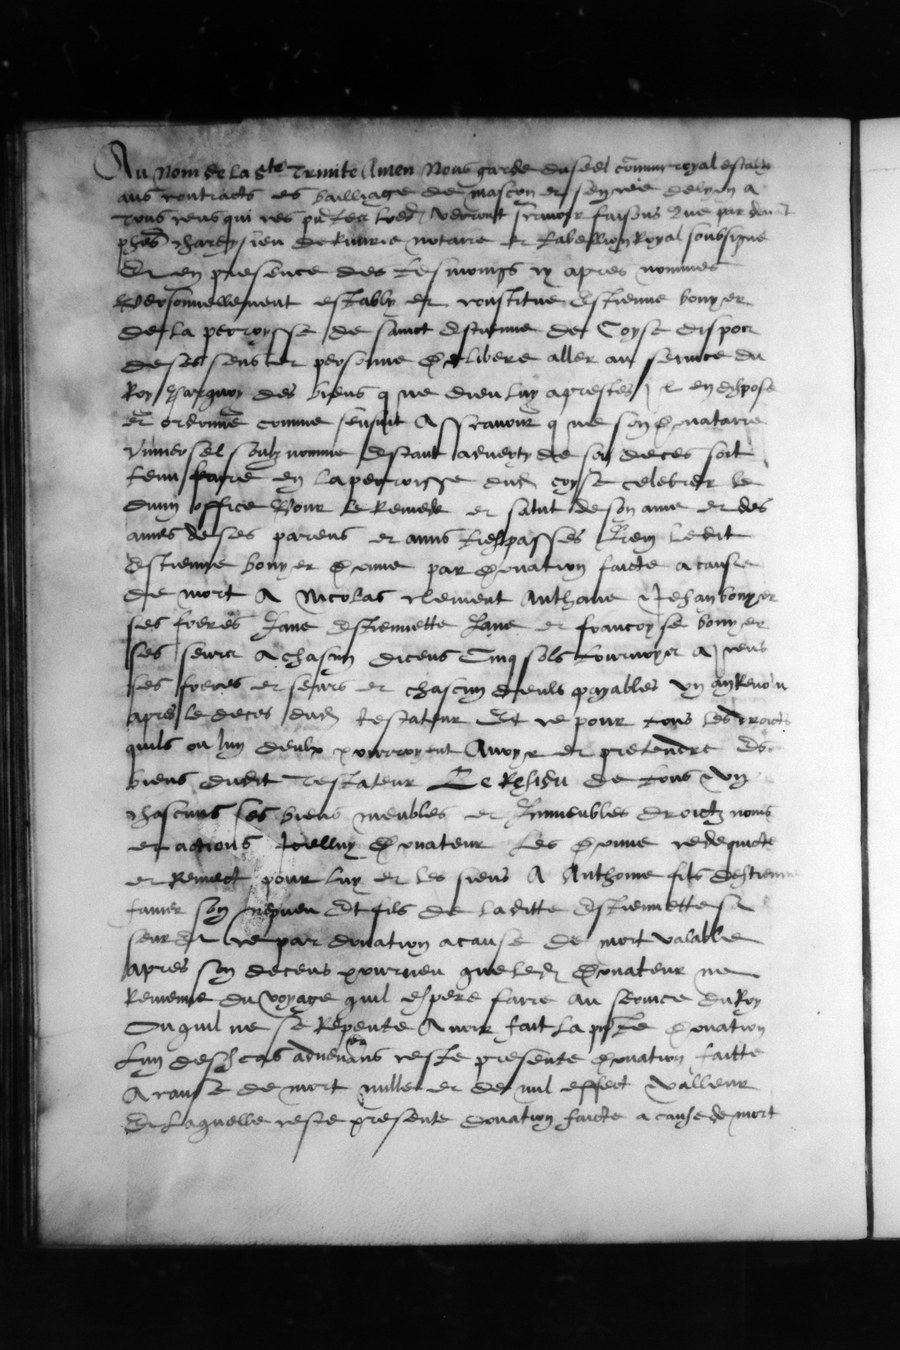 Au Nom de la Ste Trinite Amen Nous garde du seel commun royal estably
aus contracts es bailliage de mascon et senyrie de lyon a
Tous ceus qui ces pntes lres verront scavoir faisons que par devant
phes chareysieu de Riverie notaire et tabellion Royal soubsigne
Et en presence des tesmoings cy apres nommes
personnellement estably et constitue Estienne bonyer
de la perroysse de sainct Estienne de Coyse dispor
de ses sens et personne delibere aller au service du
Roy des biens que dieu luy a prestes en dispose
et ordonne comme sensuit Asscavoir que son donataire
vniversel soubz nomme estant adverty de son deces soit
tenu faire en la perroisse dud coyse celebrer le
divin office Pour le Remede et salut de son ame et des
ames de ses parens et amis trespasses Item ledit
Estienne bonyer donne par donation faicte a cause
de mort A Nicolas clement Anthoine Jehan bonyer
ses freres Jane Estiennette Jane et francoyse bonyer
ses seurs A chascun diceus Cinq sols tournoys A ceus
ses freres et seurs et chascun deuls payables vn an Revolu
apres le deces dud testateur Et ce pour tous les droicts
quils ou lun deulx pourroyent Avoyr et pretendre Es
biens dudit Testateur Le Residu de tous vng
chascuns ses biens meubles et Immeubles droictz noms
et actions Icelluy donateur les donne cede quicte
et Remect pour luy et les siens A Anthoine fils destienne
son nepveu Et fils de laditte Estiennette sa
seur Et ce par donation a cause de mort valable
apres son deceus pourveu que led donateur ne
Revienne du voyage quil espere faire au service du Roy
Ou quil ne se Repente Avoir fait la pnte donation
Lun desd cas advenans ceste presente donation faitte
A cause de mort nulle et de nul effect valleur
De laquelle ceste presente donation faicte a cause de mort